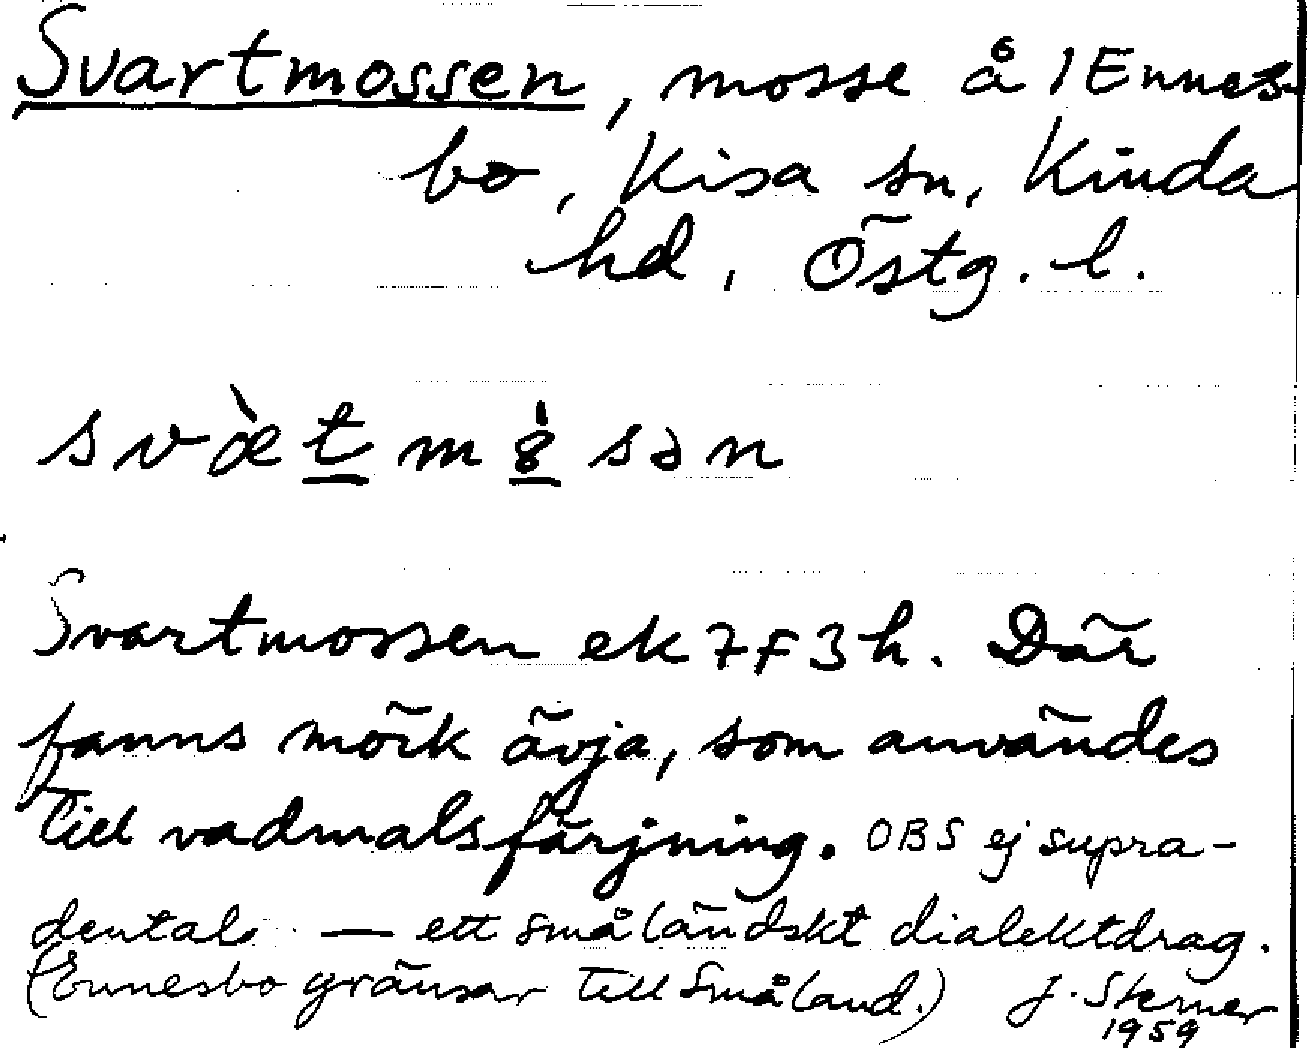 Svartmossen, mosse å 1 Ennes-
bo, Kisa sn, Kinda
hd, Östg. l.
svæ̀t mȣ́ sən
Svartmossen ek 7 f 3 h. Där
fanns mörk ävja, som användes
till vadmalsfärjning. OBS ej supra-
dental — ett småländskt dialektdrag.
(Ennesbo gränsar till Småland.) J. Sterner
1959